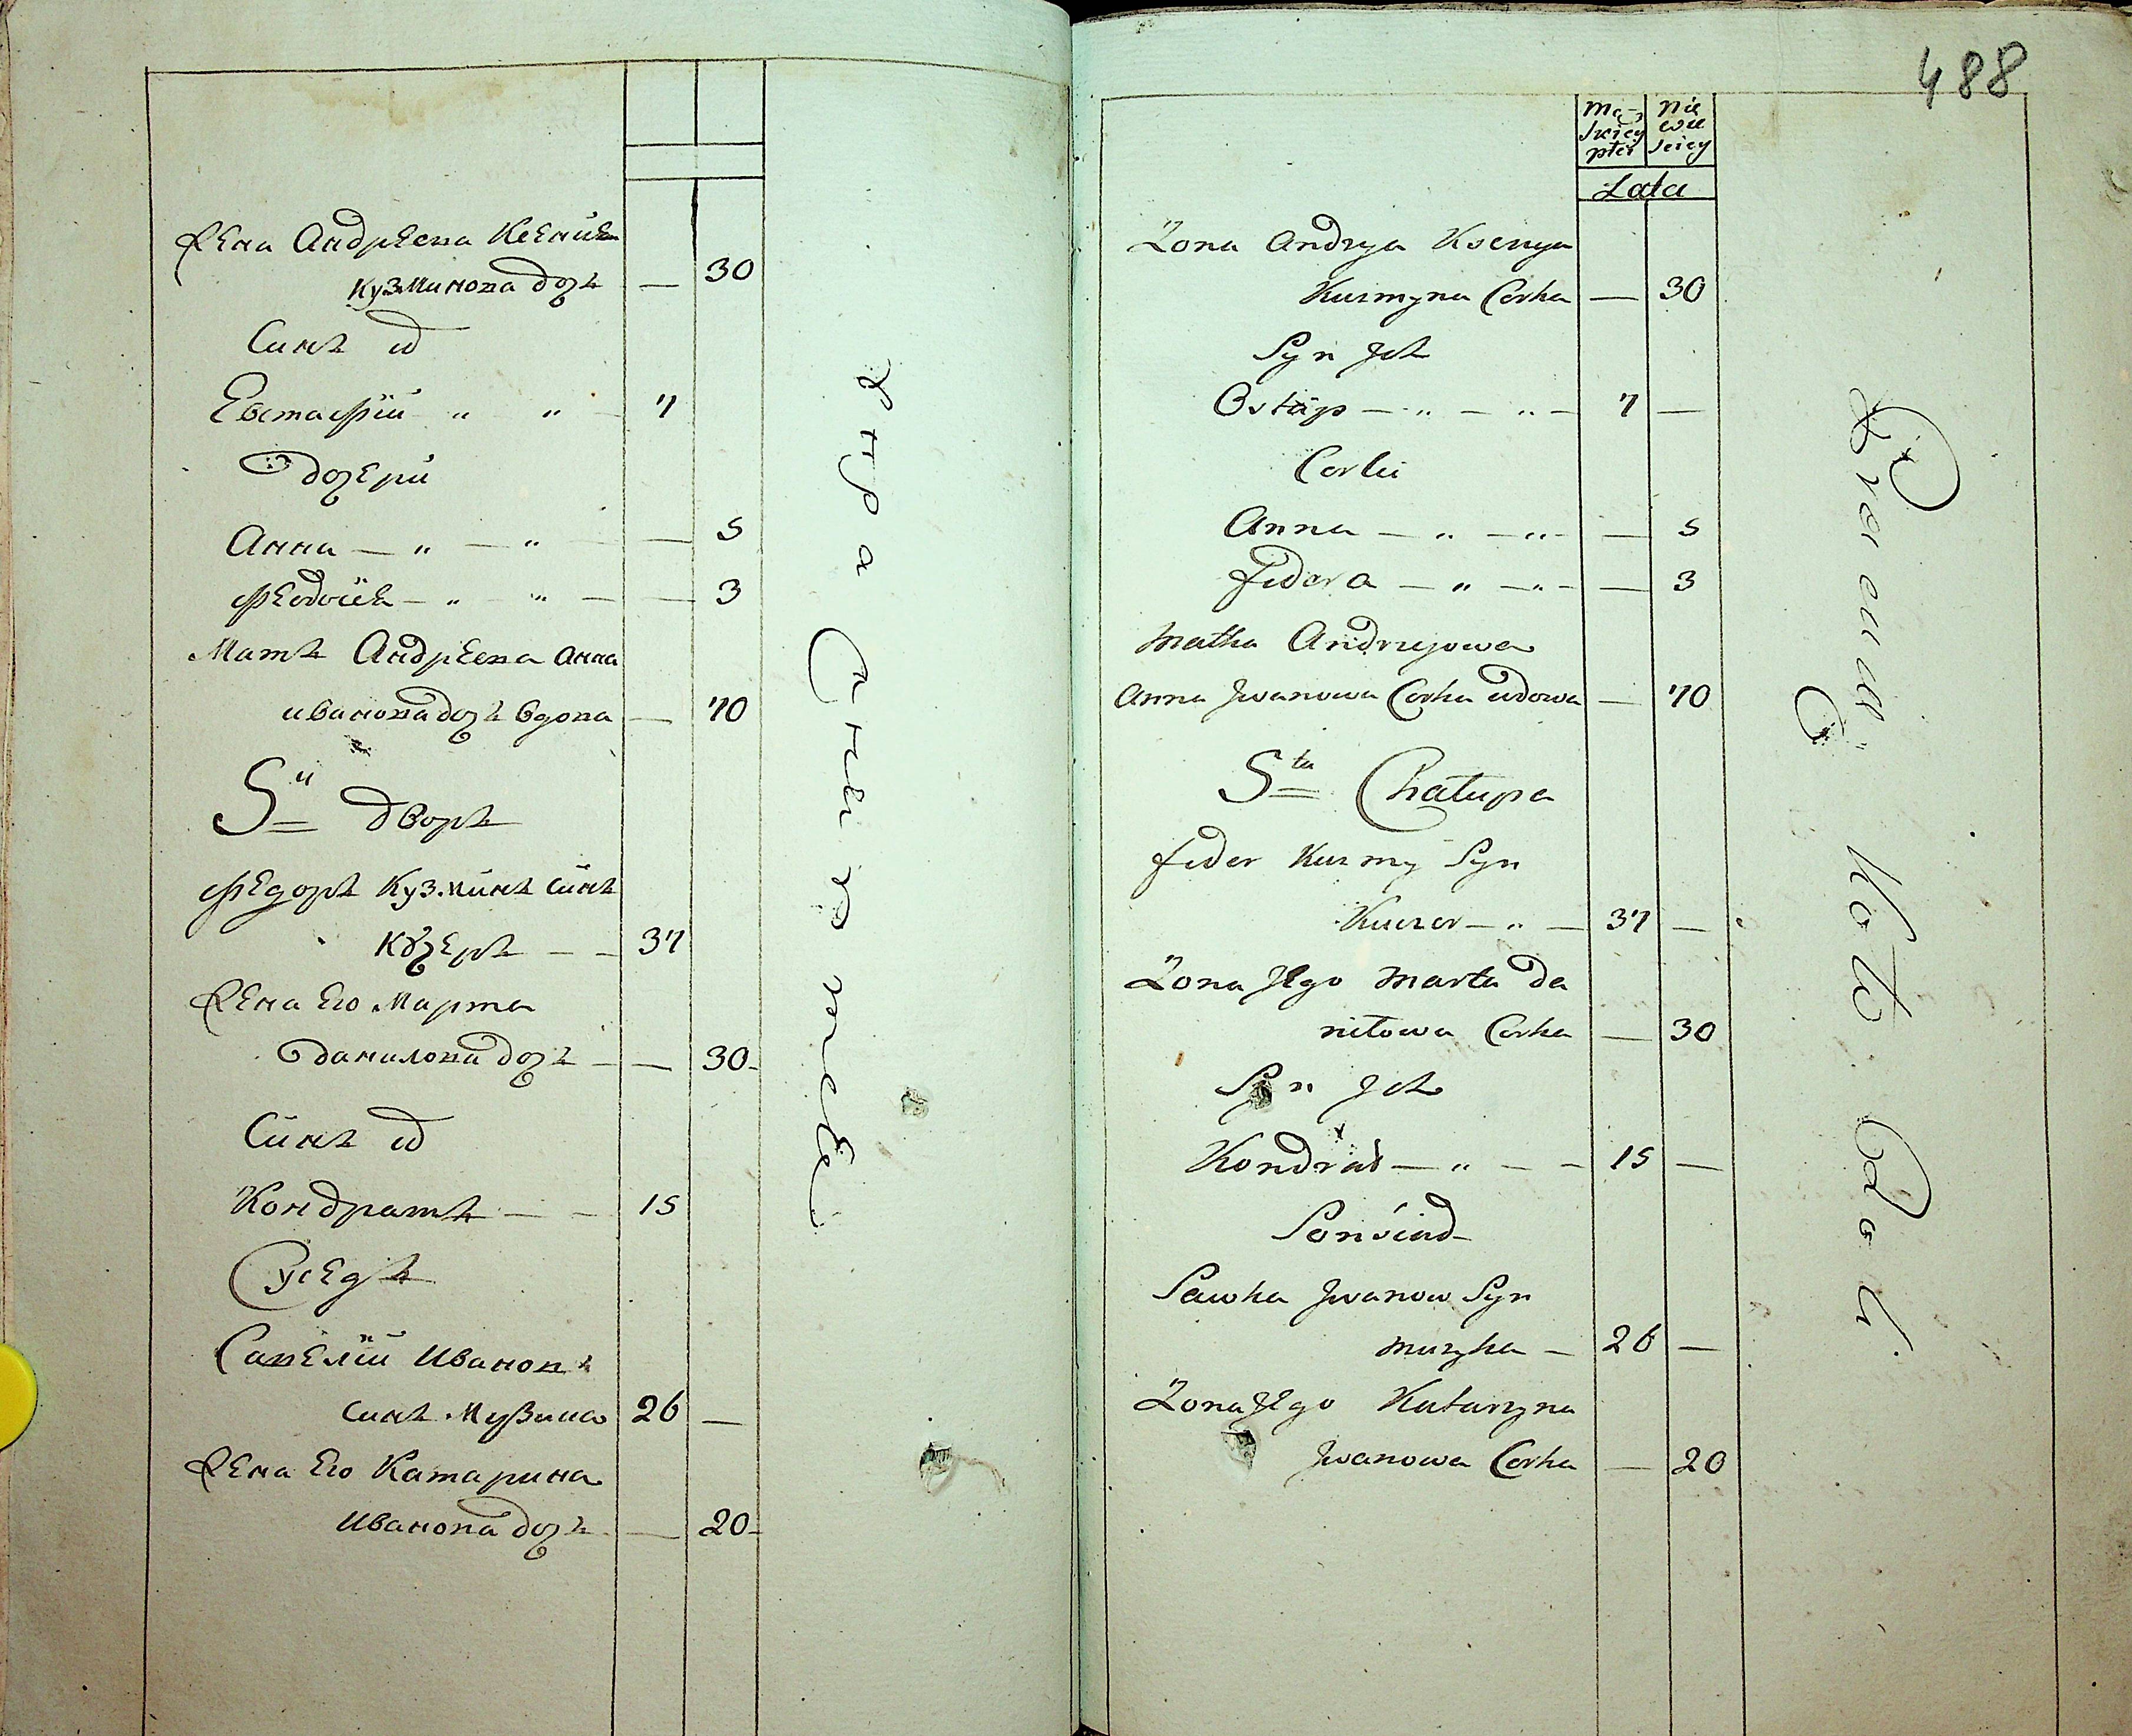 Жена Андреева Ксения
Кузминова дочь — 30
Синъ их
Евстафiй " " 7
Дочери
Анна — " — " — 5
Феодосiя — " — " — 3
Мать Андреева Анна
иванова дочь вдова — 70
5й дворъ
Федоръ Кузминъ синъ
Кучеръ — — 37
Жена Его Марта
Данилова дочь — — 30
Синъ их
Кондратъ — — 15
Суседъ
Савелiй Ивановъ
синъ Музика 26 —
Жена Его Катарина
Иванова дочь — 20
488
Męzkiey płci
Niewieściey
Lata
Zona Andrya Ksenya
Kuzmyna Corka — 30
Syn Ich
Ostap — " — " — 7 —
Corki
Anna — " — " — — 5
fedora — " — " — — 3
Matka Andrzejowa
Anna Jwanowa Corka wdowa — 70
5ta Chałupa
fedor Kuzmy Syn
Kuczer — " — 37 —
Zona Jego Marta Da
niłowa Corka — 30
Syn Ich
Kondrat — " — — 15 —
Sonsiad
Sawka Jwanow Syn
muzyka — 26 —
Zona Jego Katarzyna
Jwanowa Corka — 20